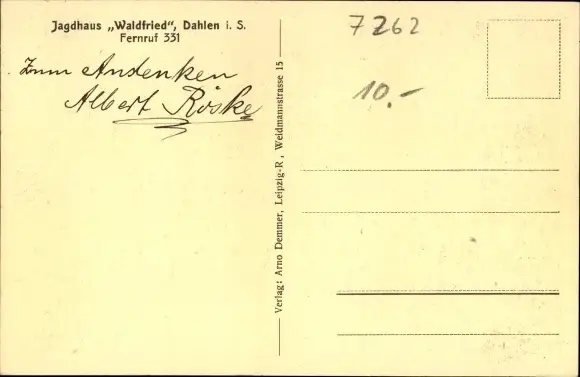 Jagdhaus „Waldfried“, Dahlen i. S.
Fernruf 331
Zum Andenken
Albert Röske
Verlag: Arno Demmer, Leipzig-R, Weidmannstrasse 15
7262
10.-